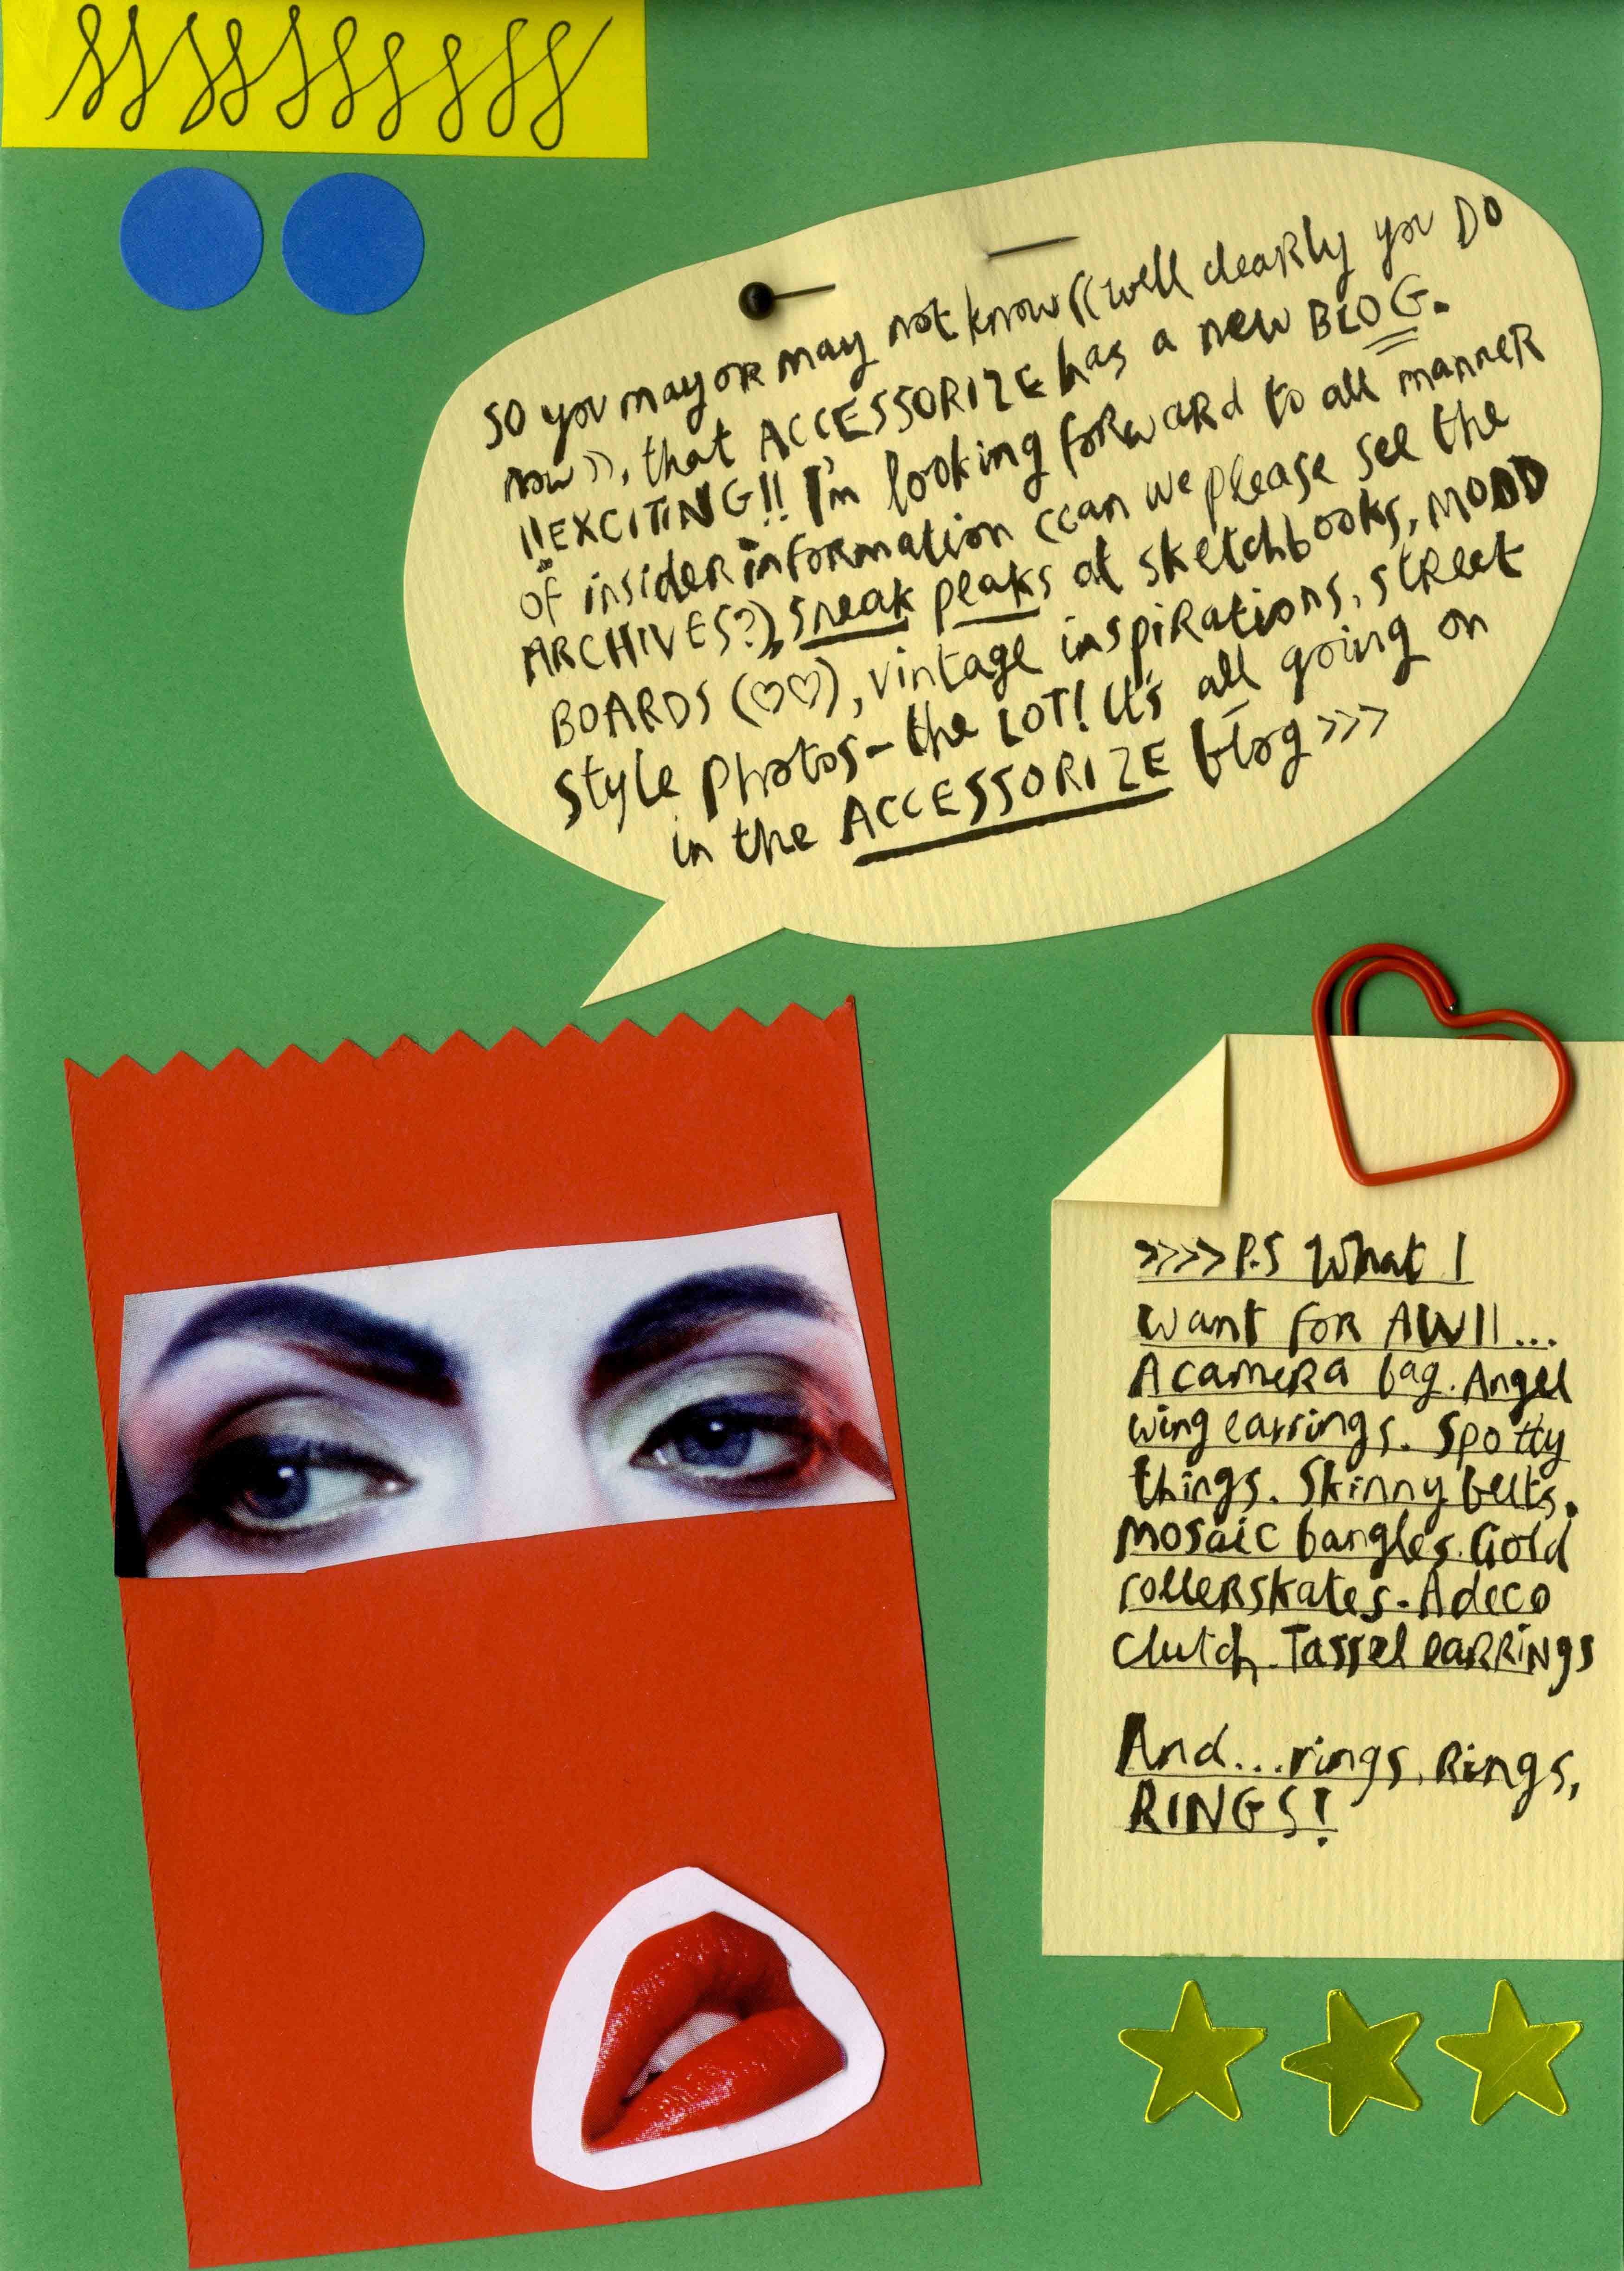 so you may or may not know ((well clearly you DO
now)), that ACCESSORIZE has a new BLOG.
!!EXCITING!! I'm looking forward to all manner
of insider information (can we please see the
ARCHIVES?), sneak peaks at sketchbooks, MOOD
BOARDS (♡♡), vintage inspirations, street
style photos - the LOT! It's all going on
in the ACCESSORIZE blog >>>
>>>> P.S What I
want for AW11...
A camera bag. Angel
wing earrings. Spotty
things. Skinny belts.
Mosaic bangles. Gold
rollerskates. A deco
clutch. Tassel earrings
And...rings, Rings,
RINGS!